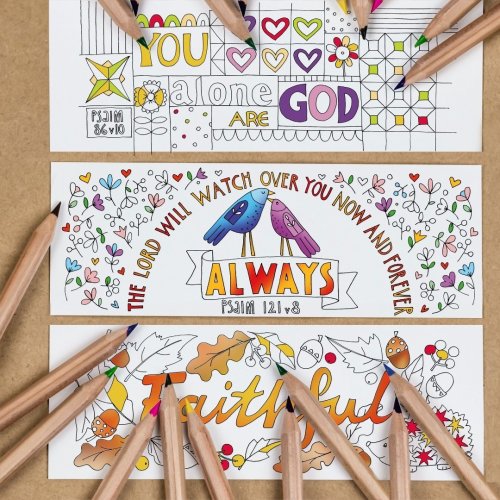 YOU
alone
ARE GOD
PSAlM
86 v 10
THE LORD WILL WATCH OVER YOU NOW AND FOREVER
ALWAYS
PSAlM 121 v 8
Faithful